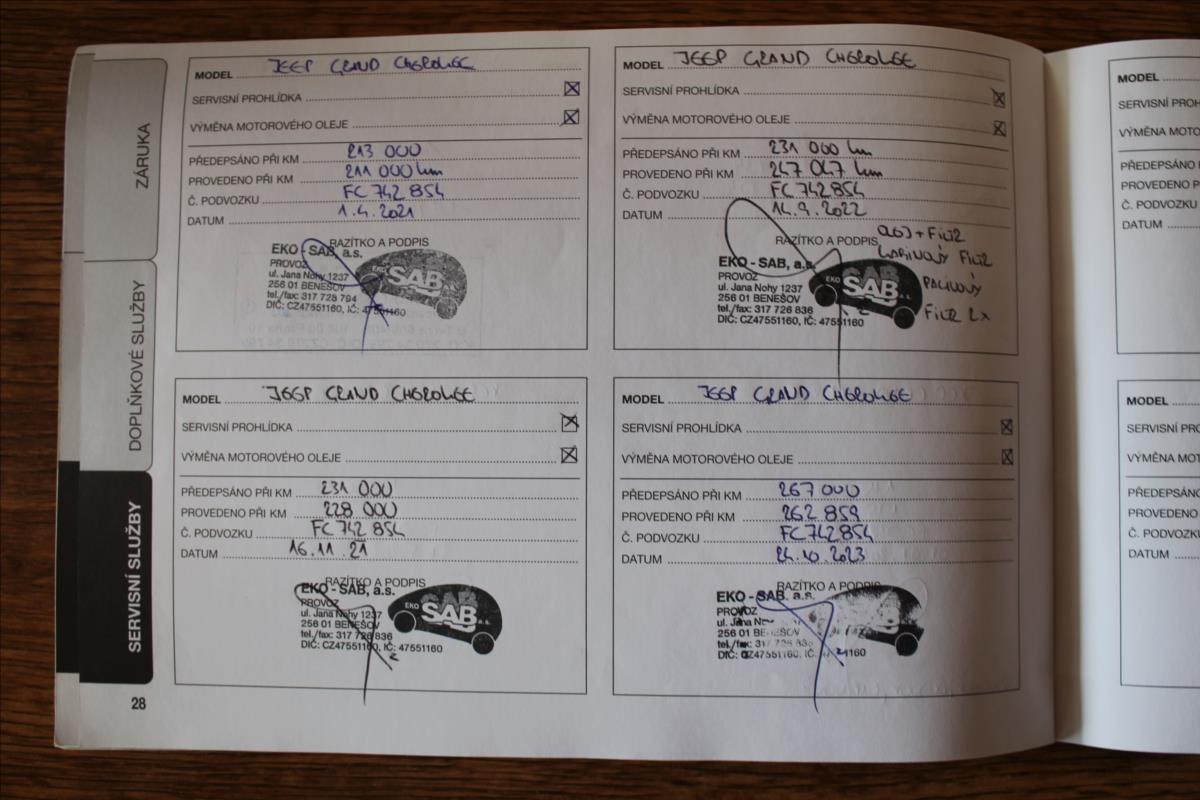 ZÁRUKA
DOPLŇKOVÉ SLUŽBY
SERVISNÍ SLUŽBY
28
MODEL JEEP GRAND CHEROKEE
SERVISNÍ PROHLÍDKA
VÝMĚNA MOTOROVÉHO OLEJE
PŘEDEPSÁNO PŘI KM 213 000
PROVEDENO PŘI KM 211 000 km
Č. PODVOZKU FC 742 854
DATUM 1.4.2021
RAZÍTKO A PODPIS
EKO - SAB, a.s.
PROVOZ
ul. Jana Nohy 1237
256 01 BENEŠOV
tel./fax: 317 728 794
DIČ: CZ47551160, IČ: 47551160
EKO SAB
MODEL JEEP GRAND CHEROKEE
SERVISNÍ PROHLÍDKA
VÝMĚNA MOTOROVÉHO OLEJE
PŘEDEPSÁNO PŘI KM 231 000 km
PROVEDENO PŘI KM 247 047 km
Č. PODVOZKU FC 742 854
DATUM 14.9.2022
RAZÍTKO A PODPIS
OLEJ + FILTR
KABINOVÝ FILTR
PALIVOVÝ
FILTR 2x
EKO - SAB, a.s.
PROVOZ
ul. Jana Nohy 1237
256 01 BENEŠOV
tel./fax: 317 726 836
DIČ: CZ47551160, IČ: 47551160
EKO SAB a.s.
MODEL JEEP GRAND CHEROKEE
SERVISNÍ PROHLÍDKA
VÝMĚNA MOTOROVÉHO OLEJE
PŘEDEPSÁNO PŘI KM 231 000
PROVEDENO PŘI KM 228 000
Č. PODVOZKU FC 742 854
DATUM 16.11 21
RAZÍTKO A PODPIS
EKO - SAB, a.s.
PROVOZ
ul. Jana Nohy 1237
256 01 BENEŠOV
tel./fax: 317 726 836
DIČ: CZ47551160, IČ: 47551160
EKO SAB a.s.
MODEL JEEP GRAND CHEROKEE
SERVISNÍ PROHLÍDKA
VÝMĚNA MOTOROVÉHO OLEJE
PŘEDEPSÁNO PŘI KM 267 000
PROVEDENO PŘI KM 262 859
Č. PODVOZKU FC 742 854
DATUM 24.10.2023
RAZÍTKO A PODPIS
EKO - SAB, a.s.
PROVOZ
ul. Jana
256 01 BENEŠOV
tel./fax: 317 726 836
DIČ: CZ47551160, IČ: 47551160
MODEL
SERVISNÍ PRO
VÝMĚNA MOTO
PŘEDEPSÁNO
PROVEDENO
Č. PODVOZKU
DATUM
MODEL
SERVISNÍ PRO
VÝMĚNA MOT
PŘEDEPSÁNO
PROVEDENO
Č. PODVOZKU
DATUM